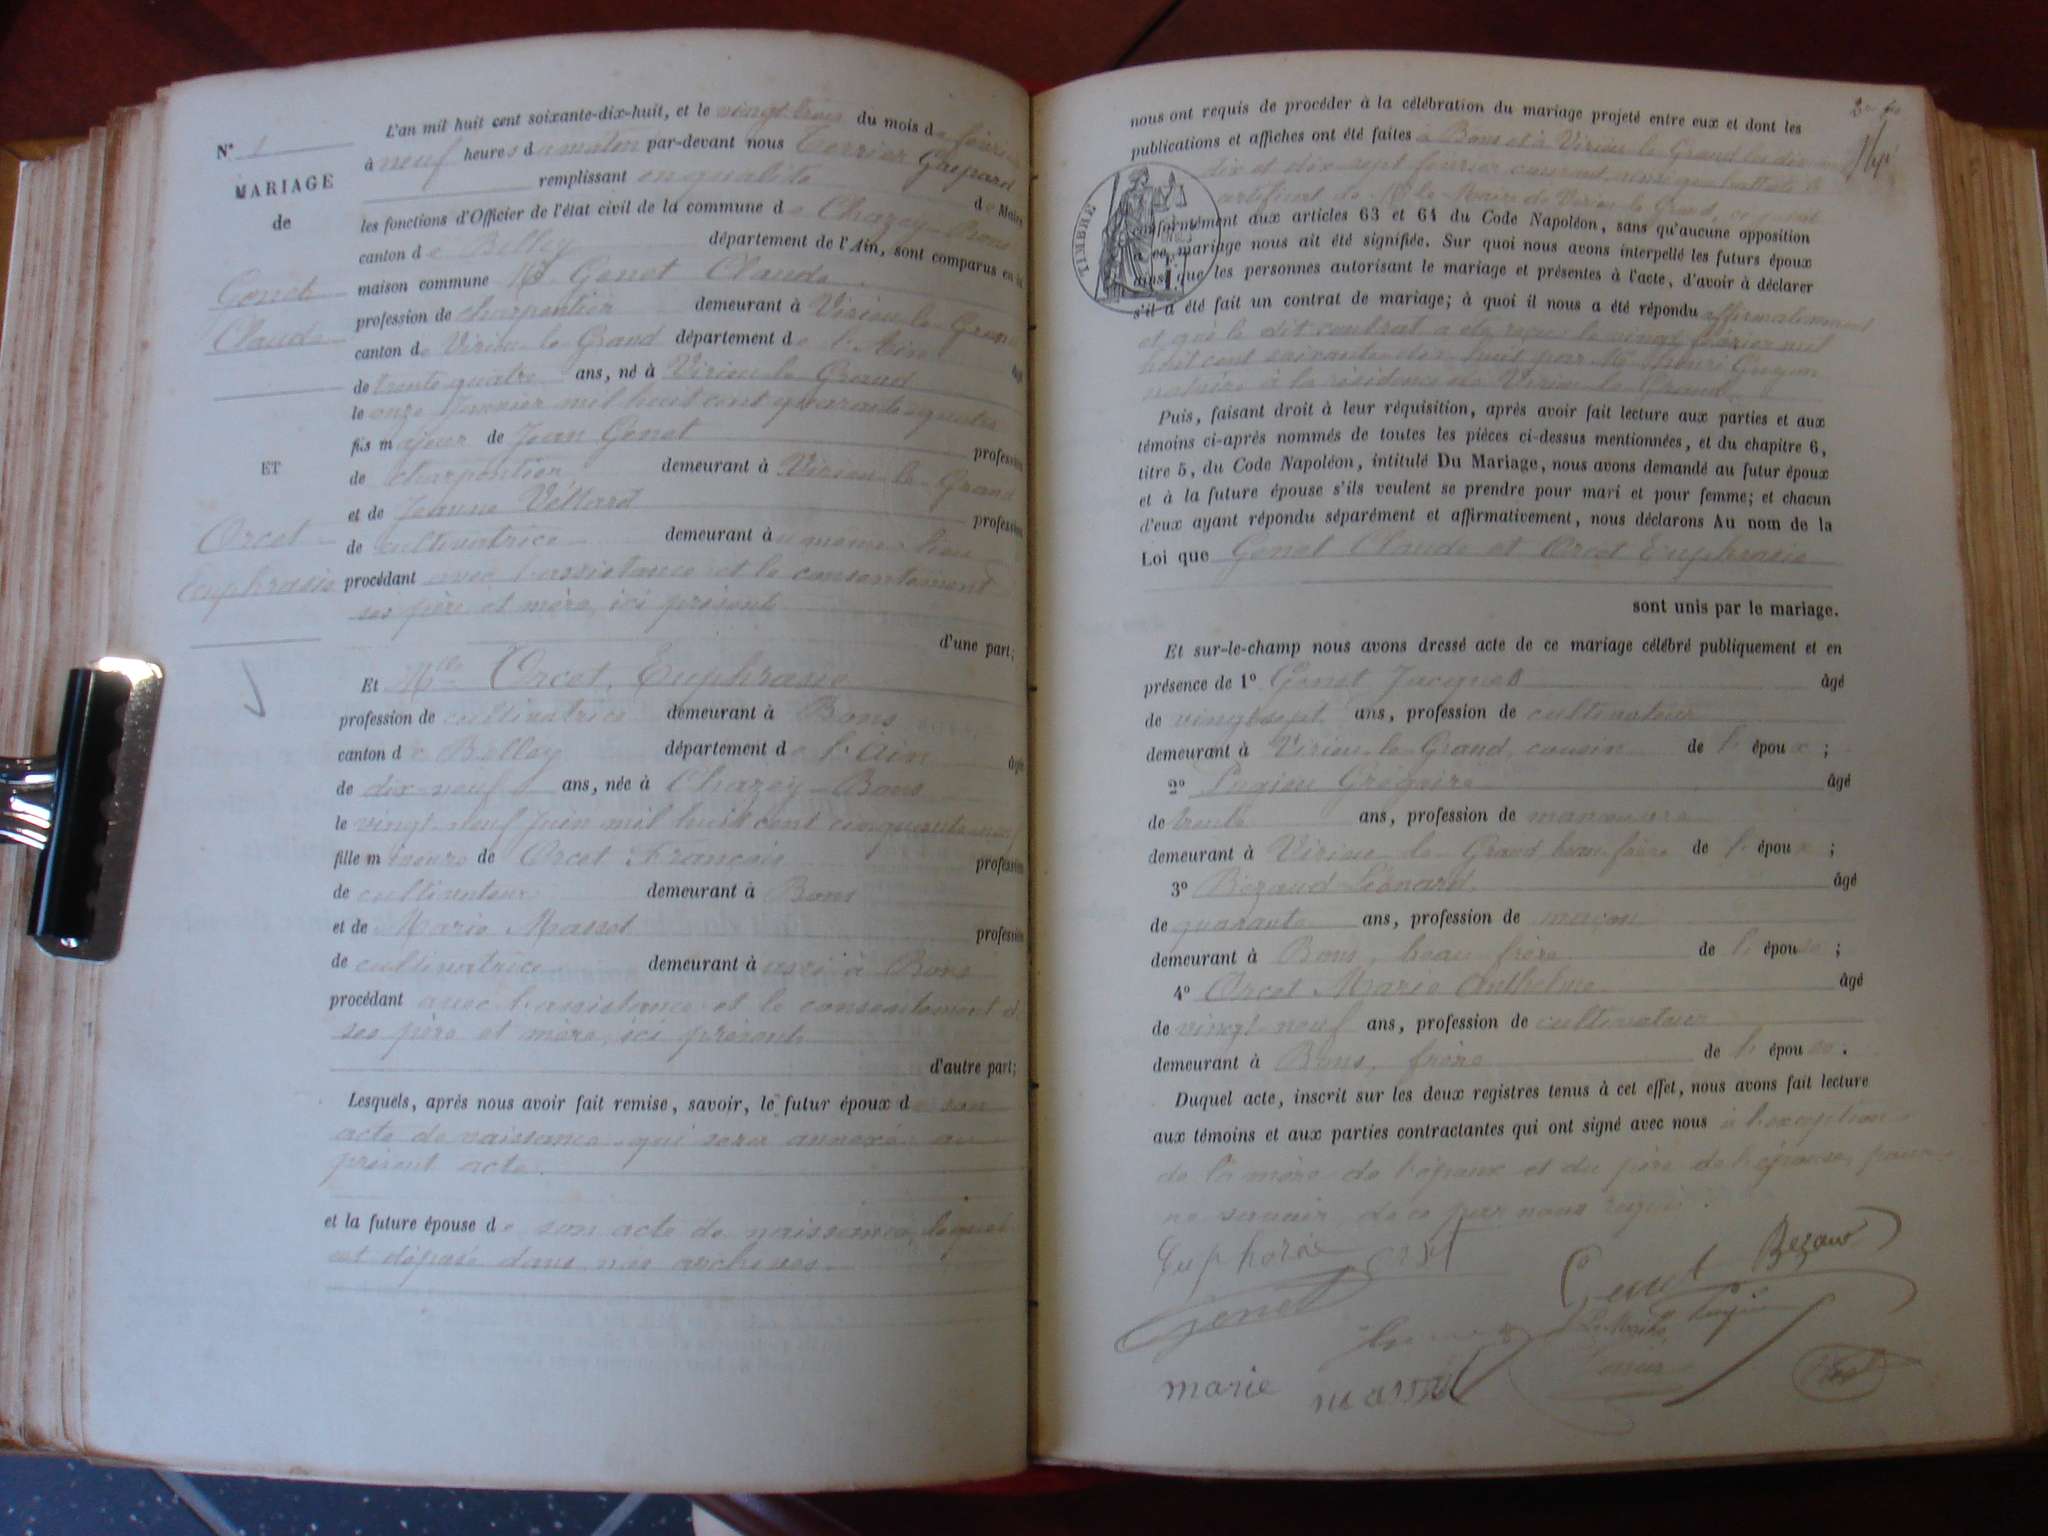 N° 1
MARIAGE
de
Genet
Claude
ET
Orcet
Euphrasie
L'an mil huit cent soixante-dix-huit, et le vingt trois du mois de février
à neuf heures du matin par-devant nous Terrier Gaspard
remplissant en qualité de Maire
les fonctions d'Officier de l'état civil de la commune de Chazey-Bons
canton de Belley département de l'Ain, sont comparus en la
maison commune Mr Genet Claude
profession de charpentier demeurant à Virieu-le-Grand
canton de Virieu-le-Grand département de l'Ain âgé
de trente quatre ans, né à Virieu le Grand
le onze Janvier mil huit cent quarante quatre
fils majeur de Jean Genet profession
de charpentier demeurant à Virieu-le-Grand
et de Jeanne Vettard profession
de cultivatrice demeurant au même lieu
procédant avec l'assistance et le consentement
ses père et mère, ici présents
d'une part;
Et Mlle Orcet, Euphrasie
profession de cultivatrice demeurant à Bons
canton de Belley département de l'Ain âgée
de dix-neuf ans, née à Chazey-Bons
le vingt neuf Juin mil huit cent cinquante
fille mineure de Orcet François profession
de cultivateur demeurant à Bons
et de Marie Massot profession
de cultivatrice demeurant à aussi à Bons
procédant avec l'assistance et le consentement de
ses père et mère, ici présents
d'autre part;
Lesquels, après nous avoir fait remise, savoir, le futur époux de son
acte de naissance qui sera annexé au
présent acte.
et la future épouse de son acte de naissance, lequel
est déposé dans nos archives.
nous ont requis de procéder à la célébration du mariage projeté entre eux et dont les
publications et affiches ont été faites à Bons et à Virieu-le-Grand les dix
dix et dix sept février courant
certificat de Mr le Maire de Virieu-le-Grand,
TIMBRE
conformément aux articles 63 et 64 du Code Napoléon, sans qu'aucune opposition
à ce mariage nous ait été signifiée. Sur quoi nous avons interpellé les futurs époux
ainsi que les personnes autorisant le mariage et présentes à l'acte, d'avoir à déclarer
s'il a été fait un contrat de mariage; à quoi il nous a été répondu affirmativement
et que le dit contrat a été reçu le vingt février mil
huit cent soixante dix huit par Me Henri Guyon
notaire à la résidence de Virieu le Grand.
Puis, faisant droit à leur réquisition, après avoir fait lecture aux parties et aux
témoins ci-après nommés de toutes les pièces ci-dessus mentionnées, et du chapitre 6,
titre 5, du Code Napoléon, intitulé Du Mariage, nous avons demandé au futur époux
et à la future épouse s'ils veulent se prendre pour mari et pour femme; et chacun
d'eux ayant répondu séparément et affirmativement, nous déclarons Au nom de la
Loi que Genet Claude et Orcet Euphrasie
sont unis par le mariage.
Et sur-le-champ nous avons dressé acte de ce mariage célébré publiquement et en
présence de 1° Genet Jacques âgé
de vingt sept ans, profession de cultivateur
demeurant à Virieu-le-Grand, cousin de l'époux;
2° Grégoire âgé
de trente ans, profession de manœuvre
demeurant à Virieu-le-Grand beau-frère de l'époux;
3° Bezaud Léonard âgé
de quarante ans, profession de maçon
demeurant à Bons, beau frère de l'épouse;
4° Orcet Marie Anthelme âgé
de vingt-neuf ans, profession de cultivateur
demeurant à Bons, frère de l'épouse.
Duquel acte, inscrit sur les deux registres tenus à cet effet, nous avons fait lecture
aux témoins et aux parties contractantes qui ont signé avec nous à l'exception
de la mère de l'époux et du père de l'épouse, pour
ne savoir de ce par nous requis.
Genet Bezaud
Genet
marie massot